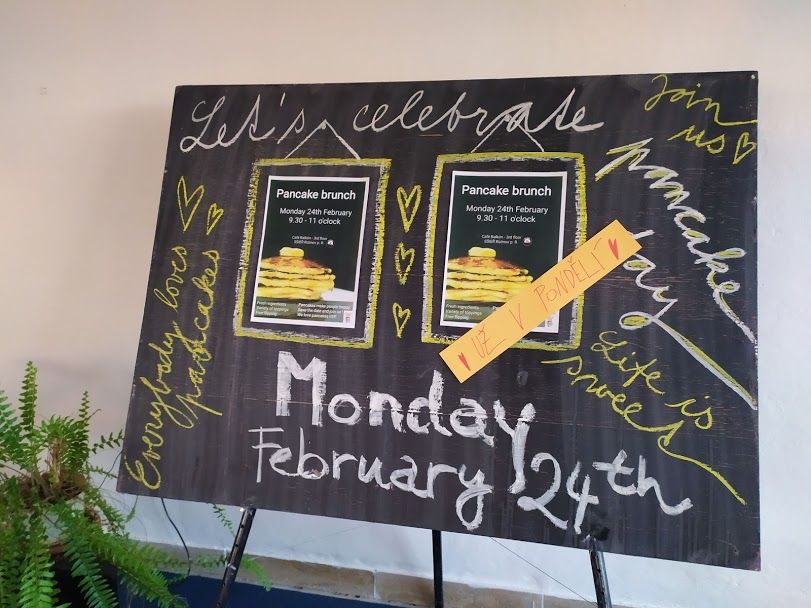 Let's celebrate
Join
us
pancake
day
Everybody loves
pancakes
Pancake brunch
Monday 24th February
9.30 - 11 o'clock
Café Balkón - 3rd floor
Fresh ingredients
Variety of toppings
Free tipping
Pancakes make people happy!
Save the date and join us!
We love pancakes!!!!
Pancake brunch
Monday 24th February
9.30 - 11 o'clock
Café Balkón - 3rd floor
Fresh ingredients
Variety of toppings
Free tipping
UŽ V PONDĚLÍ
Life is
sweet
Monday
February 24th